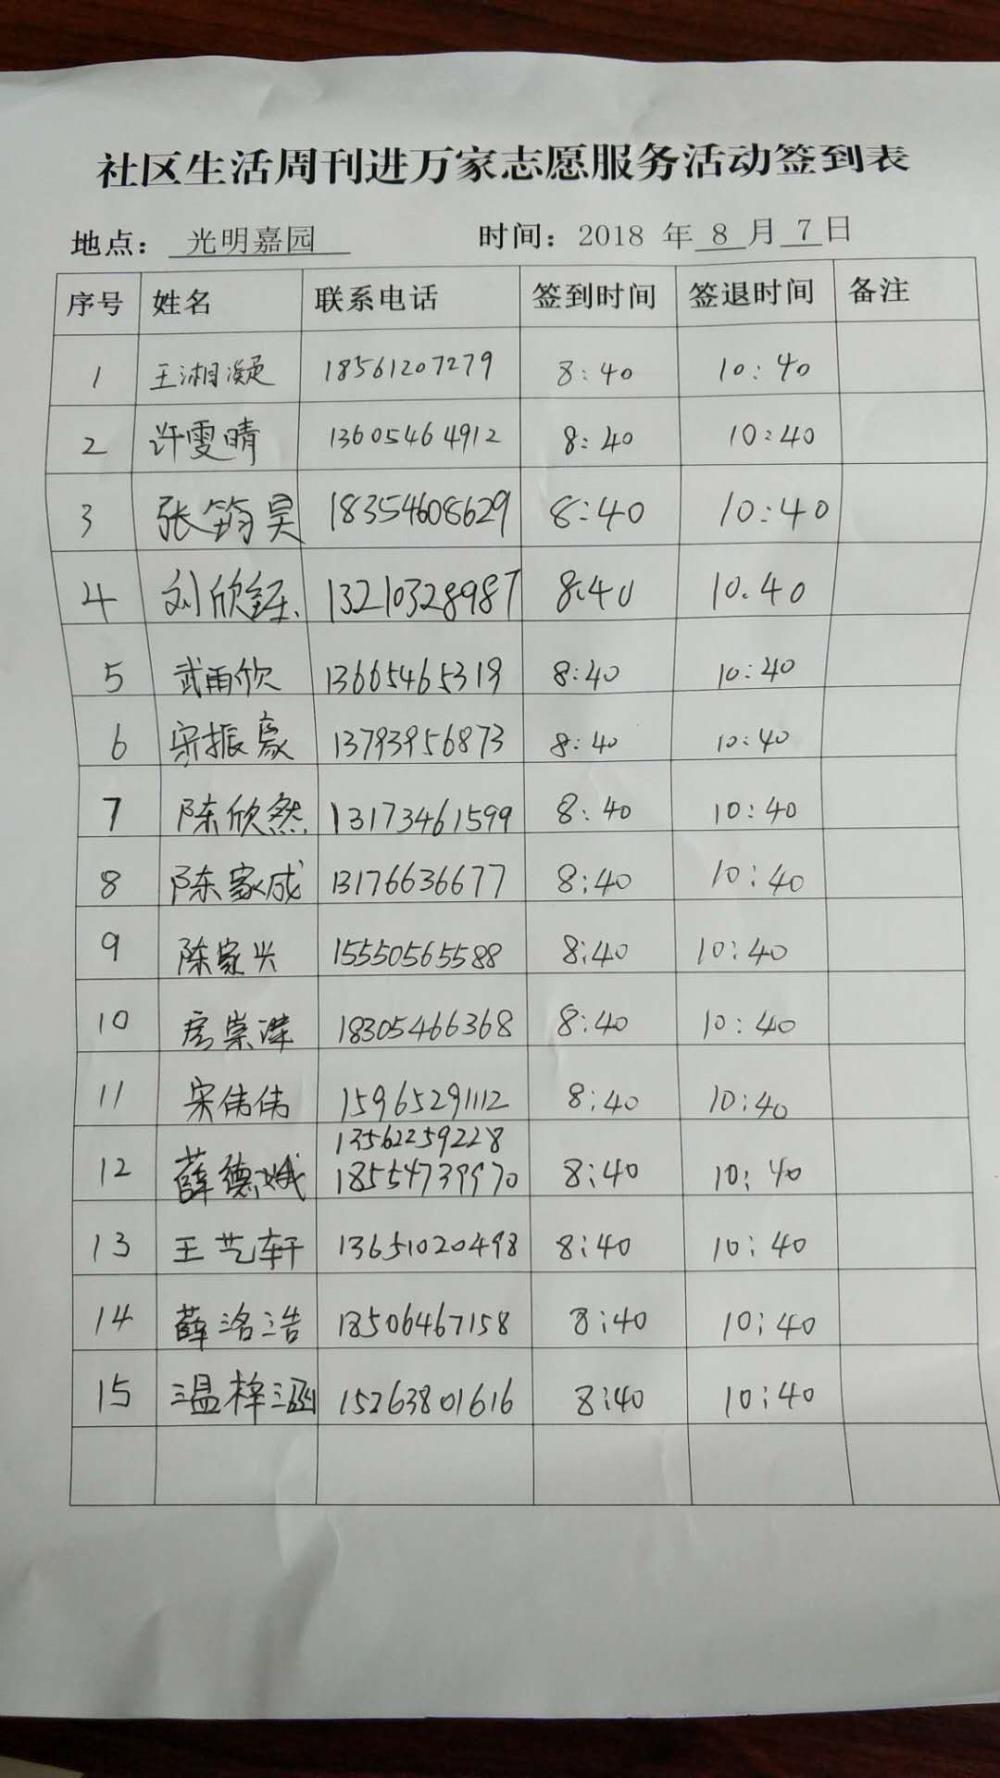 社区生活周刊进万家志愿服务活动签到表
地点： 光明嘉园 时间：2018 年 8 月 7 日
序号 姓名 联系电话 签到时间 签退时间 备注
1 王湘凝 18561207279 8:40 10:40
2 许雯晴 13605464912 8:40 10:40
3 张筠昊 18354608629 8:40 10:40
4 刘欣钰 13210328987 8:40 10.40
5 武雨欣 13665465319 8:40 10:40
6 宋振豪 13793956873 8:40 10:40
7 陈欣然 13173461599 8:40 10:40
8 陈家成 13176636677 8:40 10:40
9 陈家兴 15550565588 8:40 10:40
10 房崇泽 18305466368 8:40 10:40
11 宋伟伟 15965291112 8:40 10:40
13562259228
12 薛德娥 18554739970 8:40 10:40
13 王艺轩 13651020498 8:40 10:40
14 薛洺浩 13506467158 8:40 10:40
15 温梓涵 15263801616 8:40 10:40